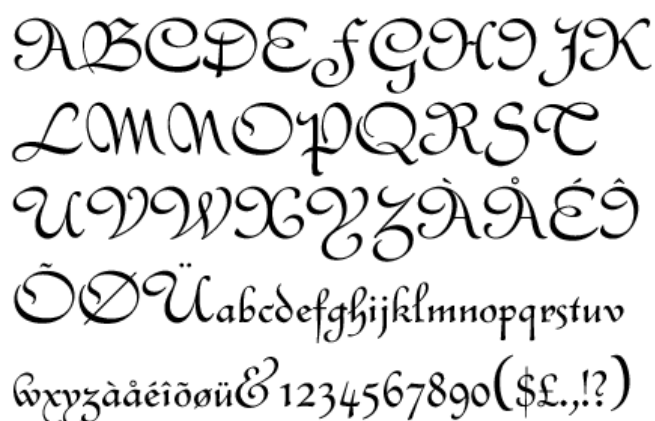 ABCDEFGHIJK
LMNOPQRST
UVWXYZÀÅÉÎ
ÕØÜabcdefghijklmnopqrstuv
wxyzàåéîõøü&1234567890($£.,!?)